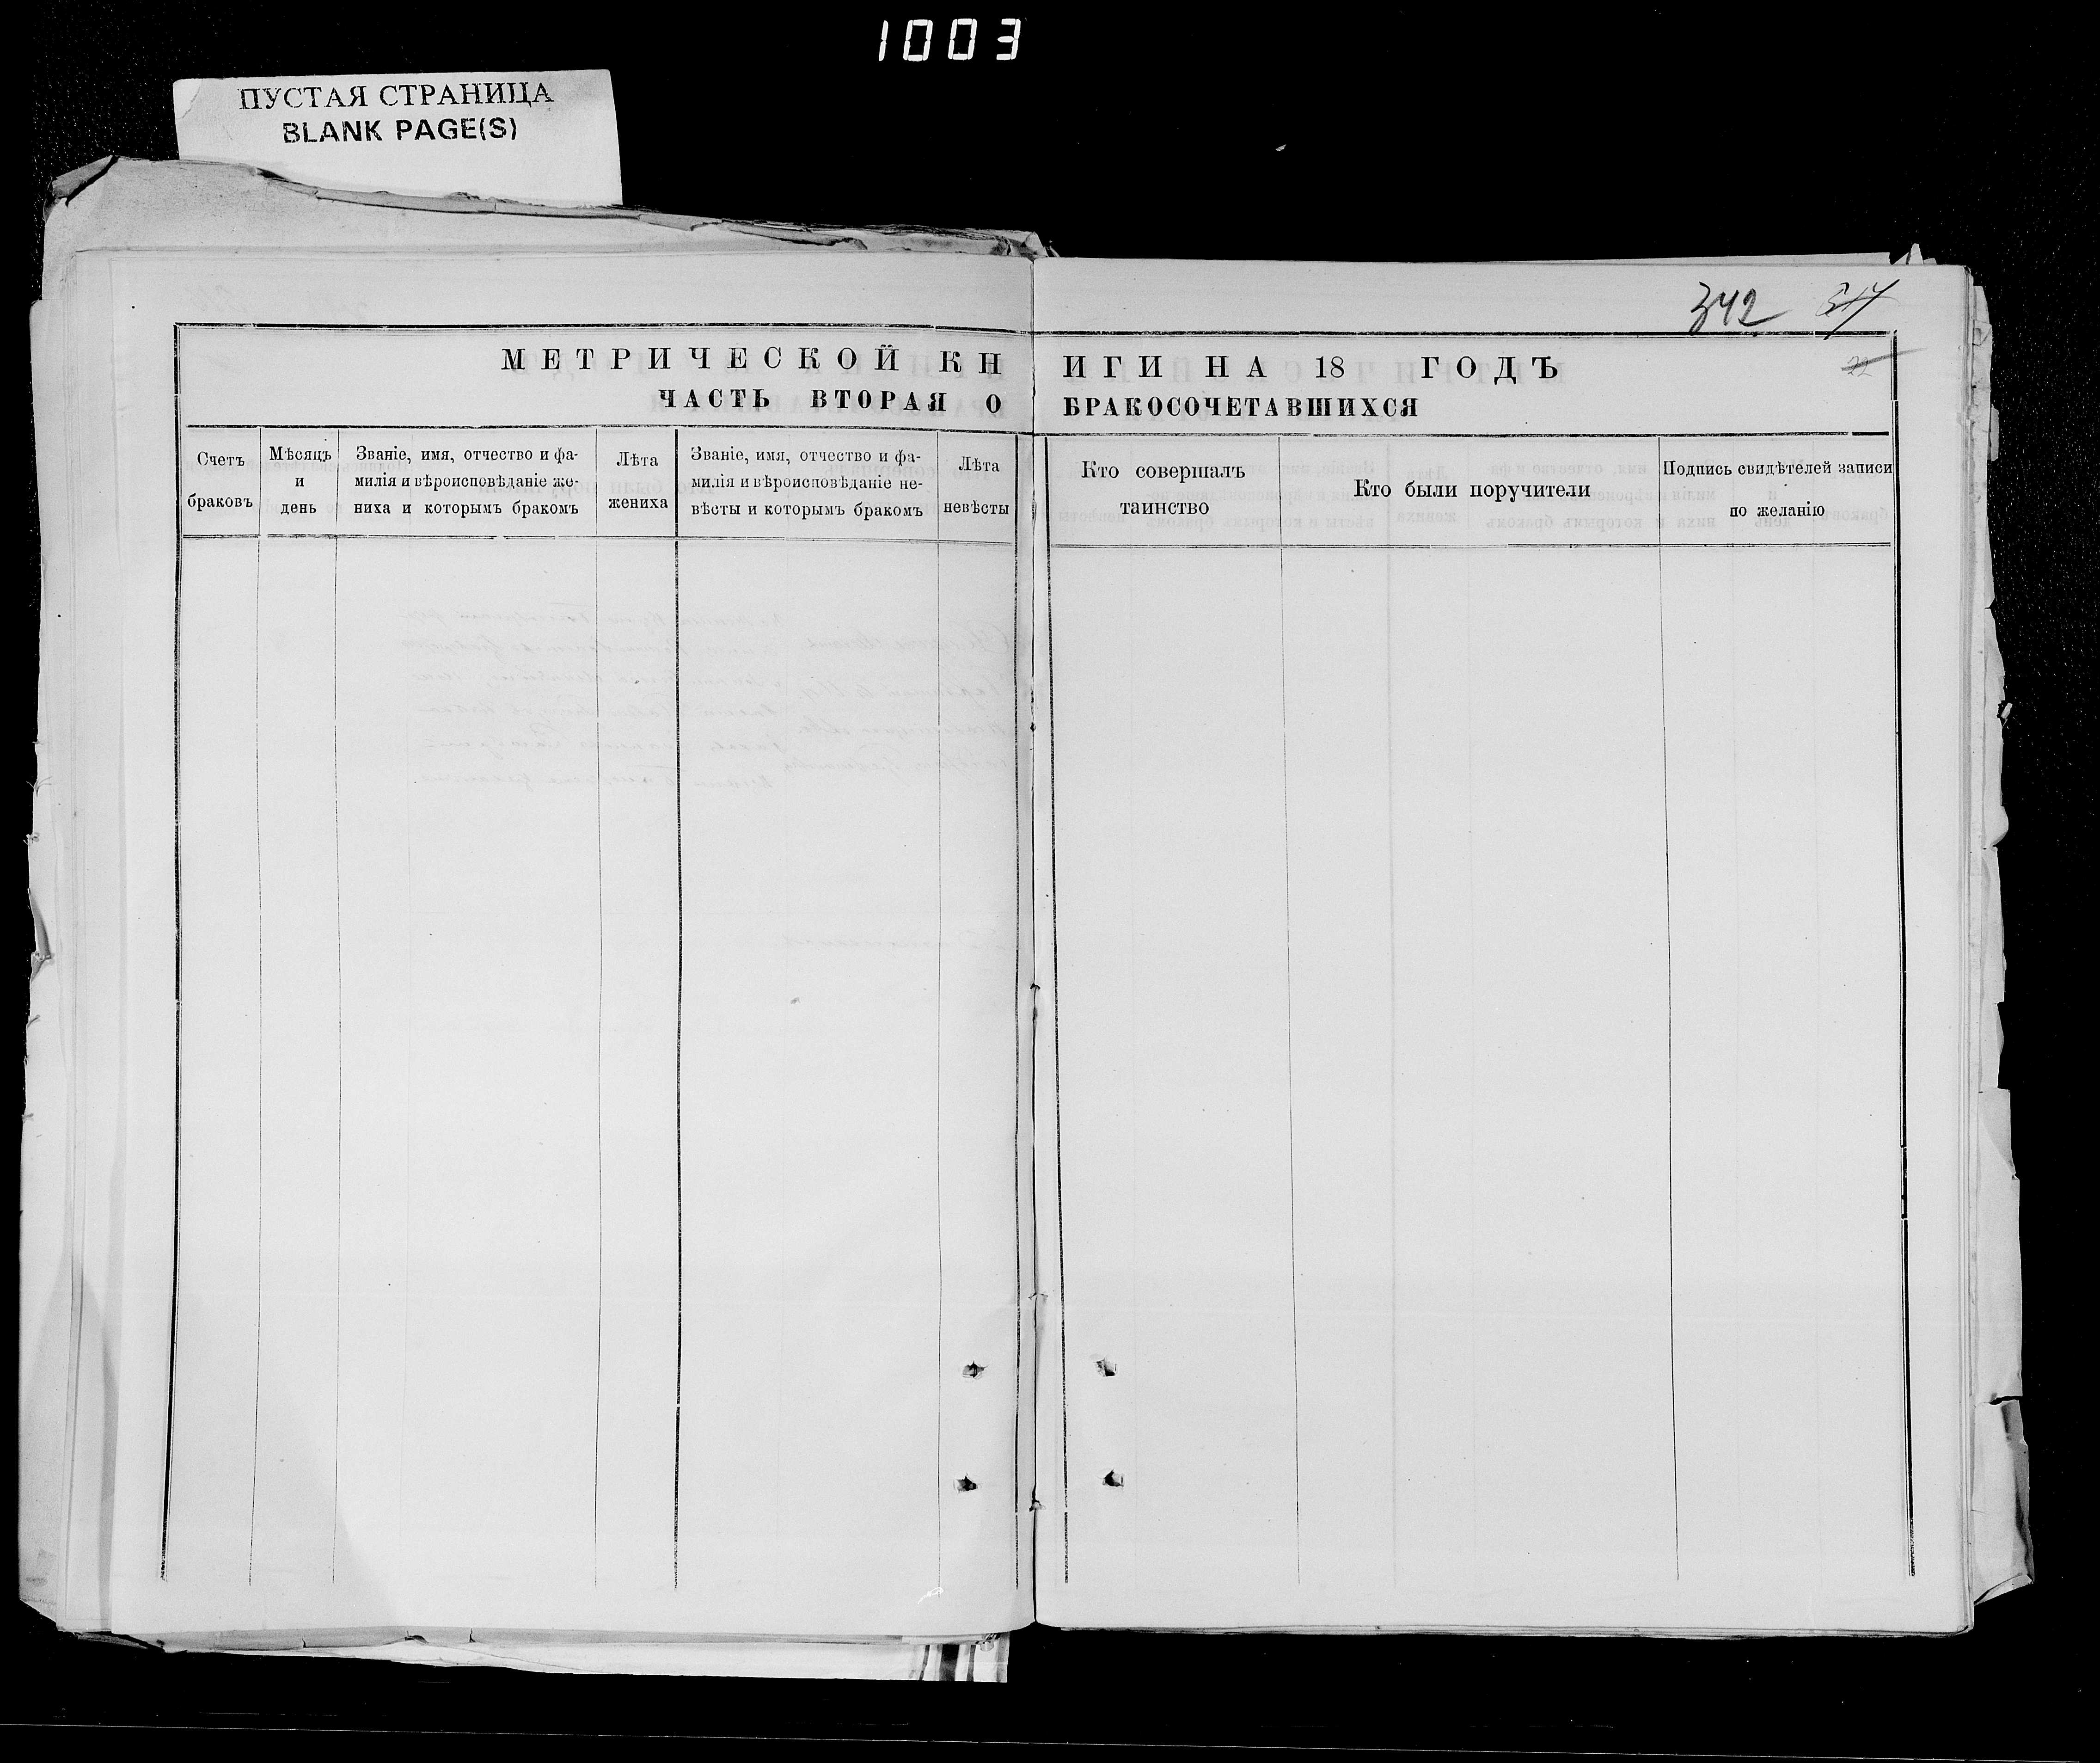 1003
ПУСТАЯ СТРАНИЦА
BLANK PAGE(S)
342
22
МЕТРИЧЕСКОЙ КНИГИ НА 18 ГОДЪ
ЧАСТЬ ВТОРАЯ О БРАКОСОЧЕТАВШИХСЯ
Счетъ
браковъ
Мѣсяцъ
и
день
Званіе, имя, отчество и фа-
милія и вѣроисповѣданіе же-
ниха и которымъ бракомъ
Лѣта
жениха
Званіе, имя, отчество и фа-
милія и вѣроисповѣданіе не-
вѣсты и которымъ бракомъ
Лѣта
невѣсты
Кто совершалъ
таинство
Кто были поручители
Подпись свидѣтелей записи
по желанію